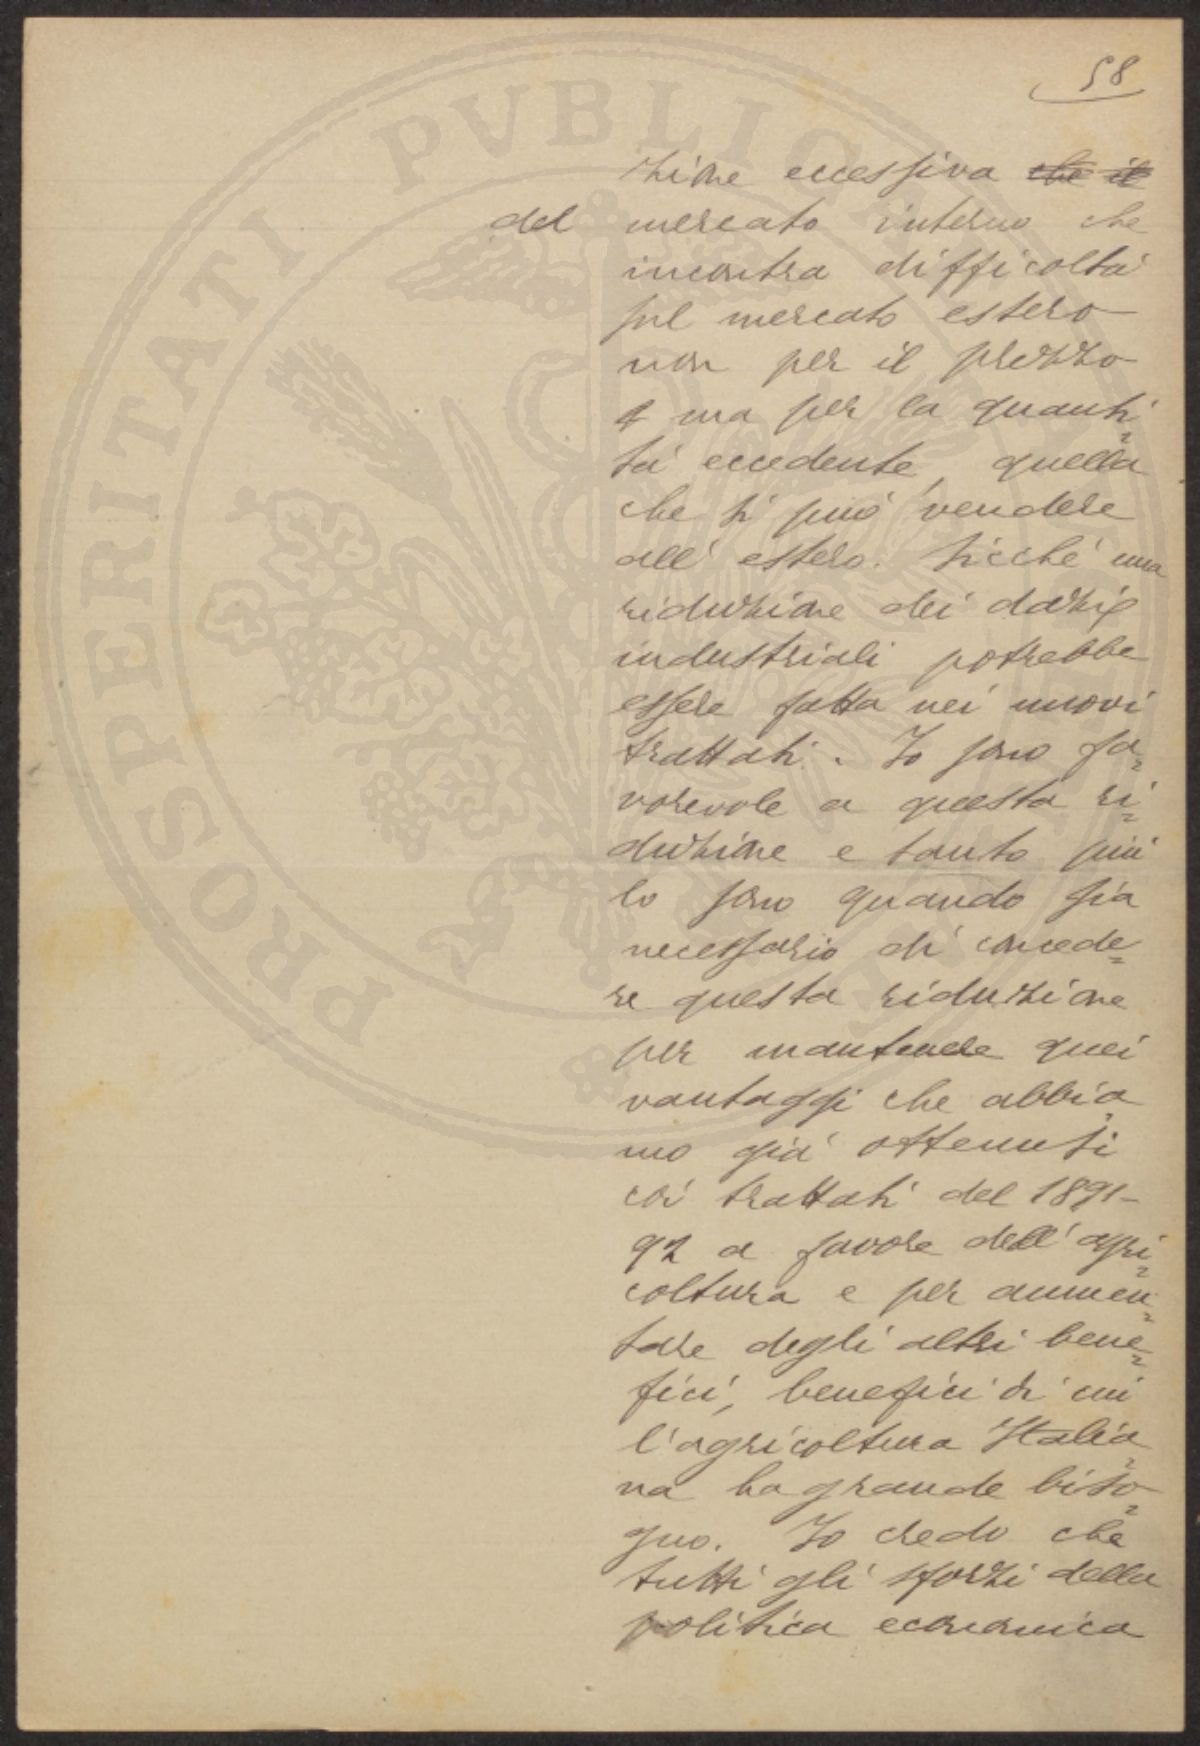 58
zione eccessiva ~~che il~~
del mercato interno che
incontra difficoltà
sul mercato estero
non per il prezzo
ma per la quanti=
tà eccedente, quella
che si può vendere
all' estero. Sicché una
riduzione dei dazi
industriali potrebbe
essere fatta nei nuovi
trattati. Io sono fa=
vorevole a questa ri=
duzione e tanto più
lo sono quando sia
necessario di concede=
re questa riduzione
per mantenere quei
vantaggi che abbia=
mo già ottenuti
coi trattati del 1891-
92 a favore dell' agri=
coltura e per aumen=
tare degli altri bene=
fici, benefici di cui
l'agricoltura Italia=
na ha grande biso=
gno. Io credo che
tutti gli sforzi della
politica economica
PROSPERITATI PVBLICAE